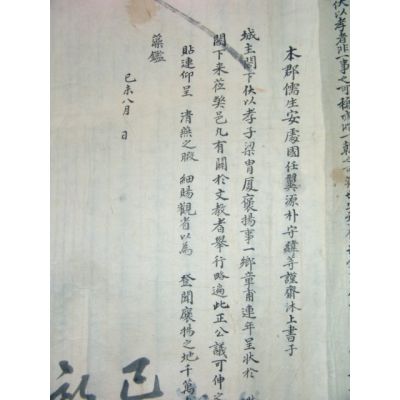 伏以孝者非一事之可稱
本郡儒生安處國任翼源朴守緯等謹齋沐上書于
城主閤下伏以孝子梁胄厦褒揚事一鄕章甫連年呈狀於
閤下来莅弊邑凡有關於文敎者擧行略遍此正公議可伸之
貼連仰呈 淸燕之暇 細賜觀省以爲 登聞褒揚之地千萬
藥鑑
己未八月 日